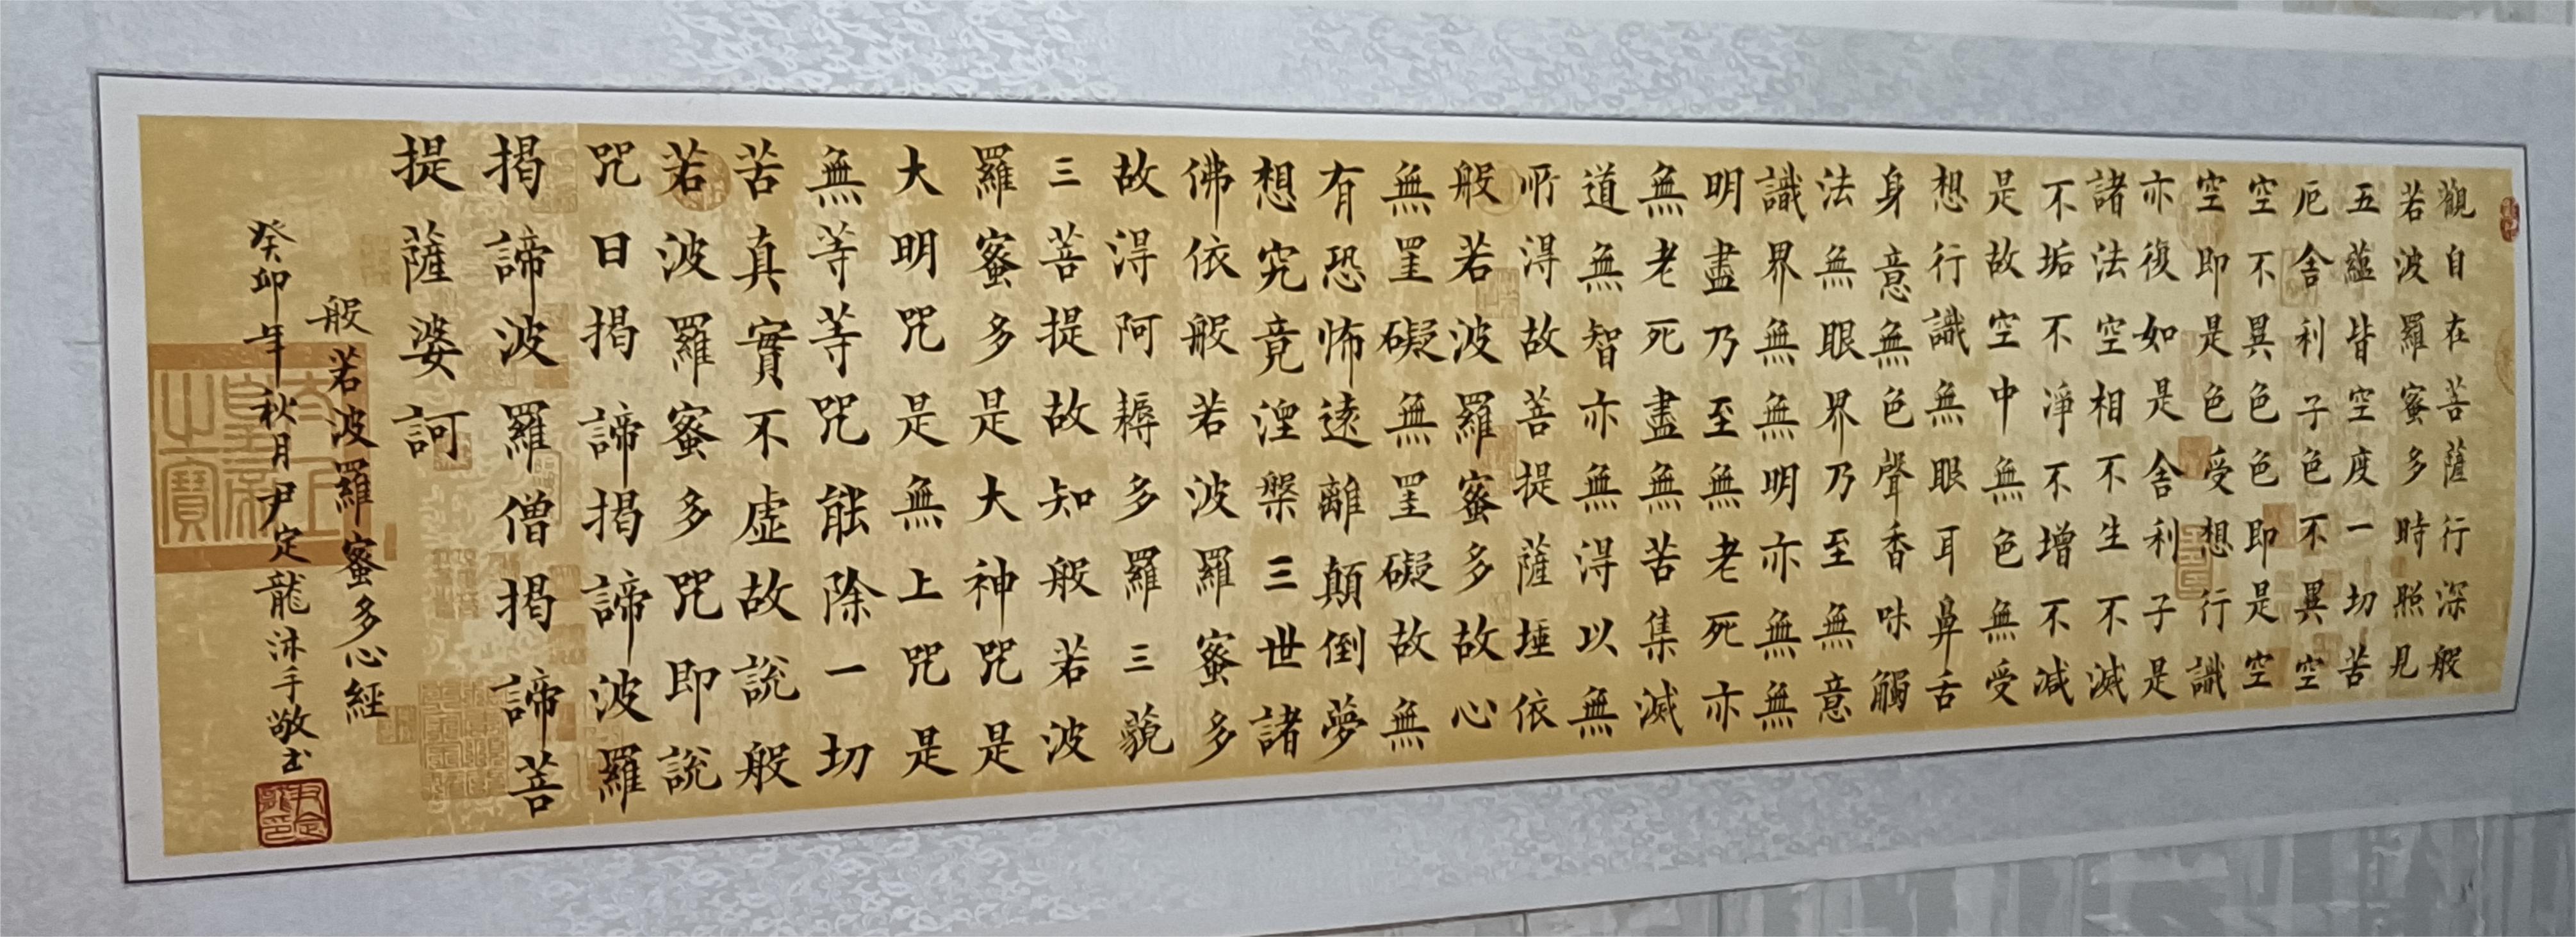 觀自在菩薩行深般
若波羅蜜多時照見
五蘊皆空度一切苦
厄舍利子色不異空
空不異色色即是空
空即是色受想行識
亦復如是舍利子是
諸法空相不生不滅
不垢不淨不增不減
是故空中無色無受
想行識無眼耳鼻舌
身意無色聲香味觸
法無眼界乃至無意
識界無無明亦無無
明盡乃至無老死亦
無老死盡無苦集滅
道無智亦無得以無
所得故菩提薩埵依
般若波羅蜜多故心
無罣礙無罣礙故無
有恐怖遠離顛倒夢
想究竟涅槃三世諸
佛依般若波羅蜜多
故得阿耨多羅三藐
三菩提故知般若波
羅蜜多是大神咒是
大明咒是無上咒是
無等等咒能除一切
苦真實不虛故說般
若波羅蜜多咒即說
咒曰揭諦揭諦波羅
揭諦波羅僧揭諦菩
提薩婆訶
般若波羅蜜多心經
癸卯年秋月尹定龍沐手敬书
太上皇帝之寶
尹定龍印